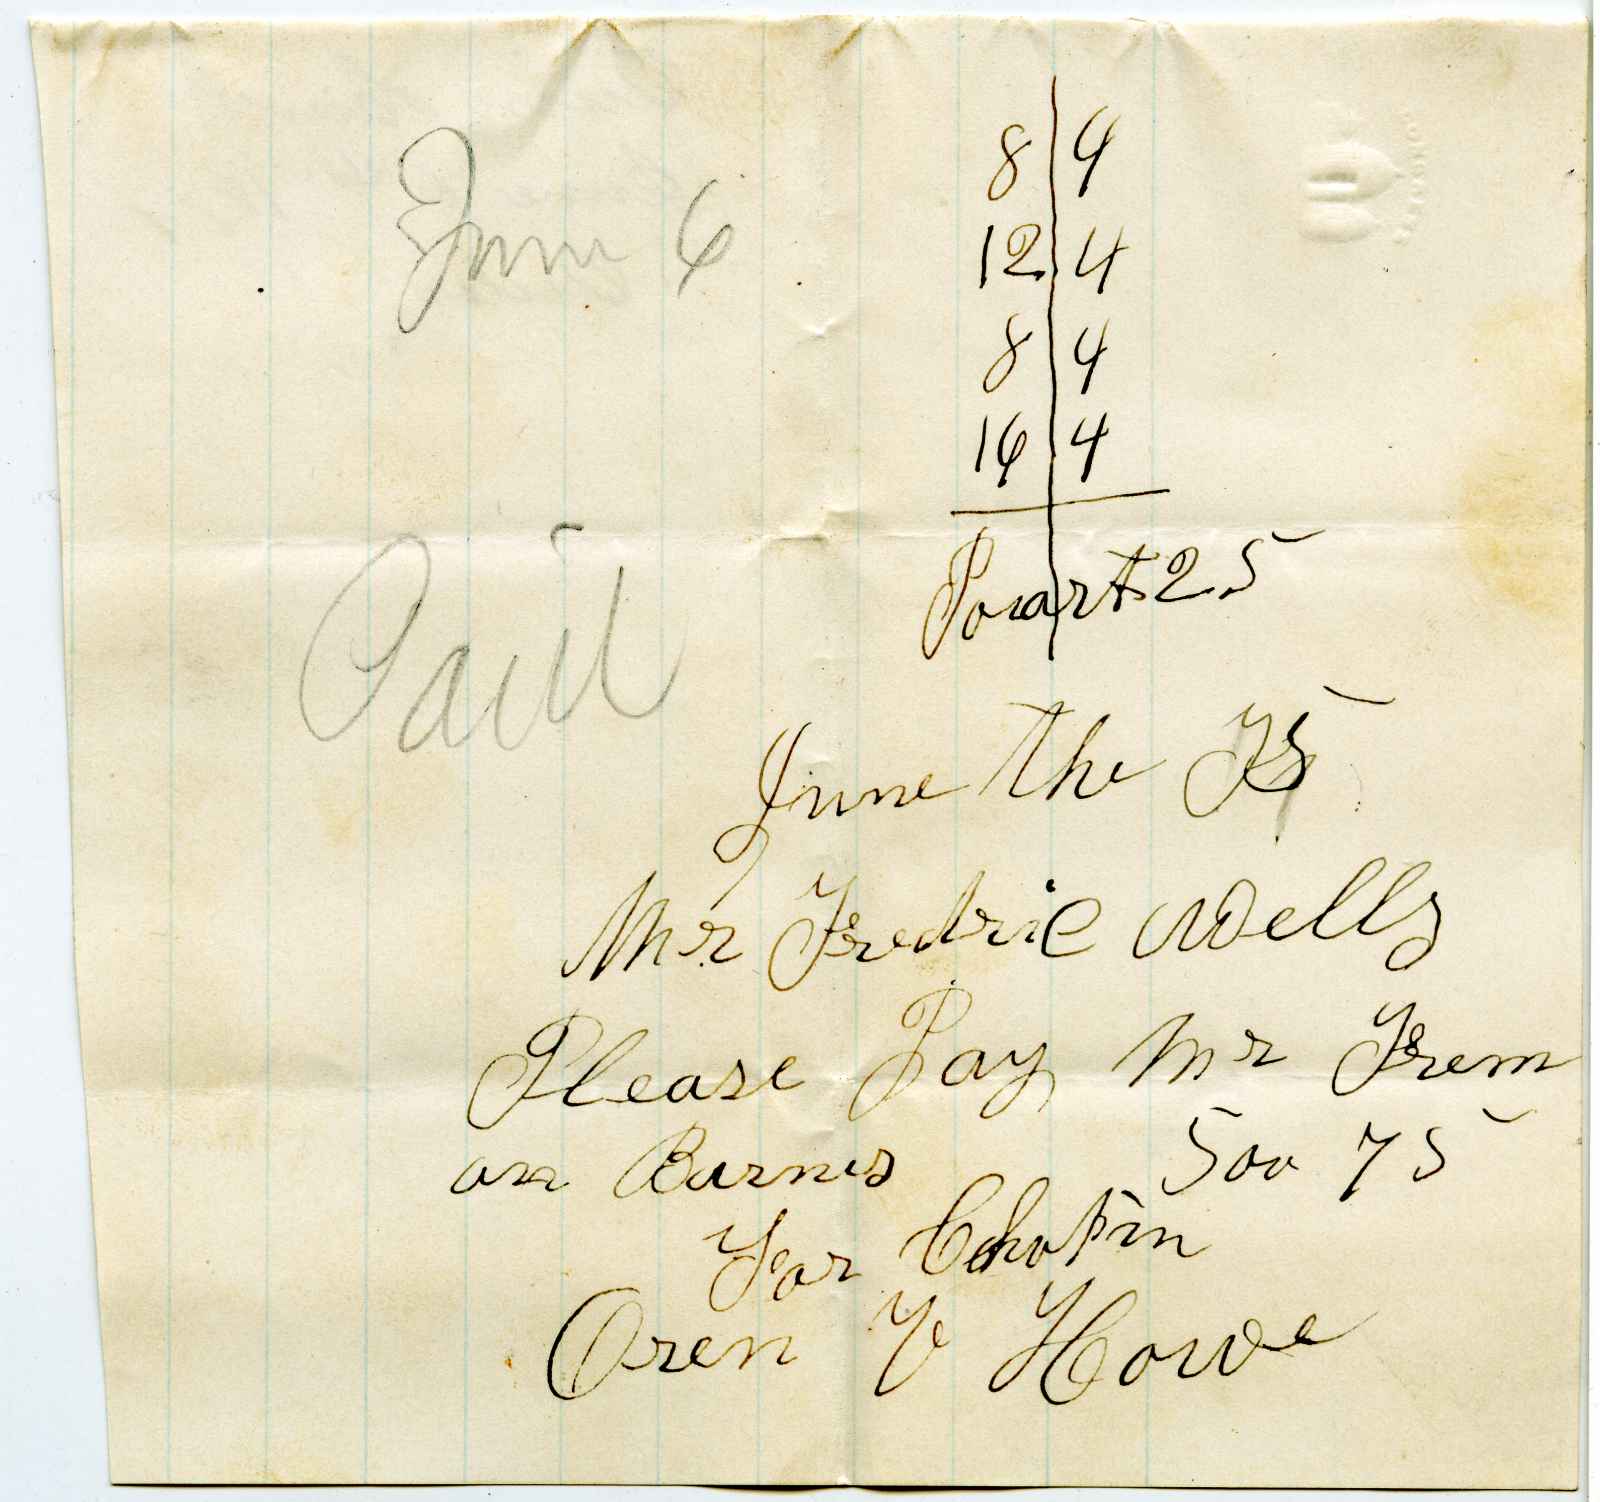 June 6
8 | 4
12 | 4
8 | 4
16 | 4
Paid
June the
Mr Fredric Wells
Please Pay Mr Frem
on Barnes 500 75
For Chopin
Oren V Howe